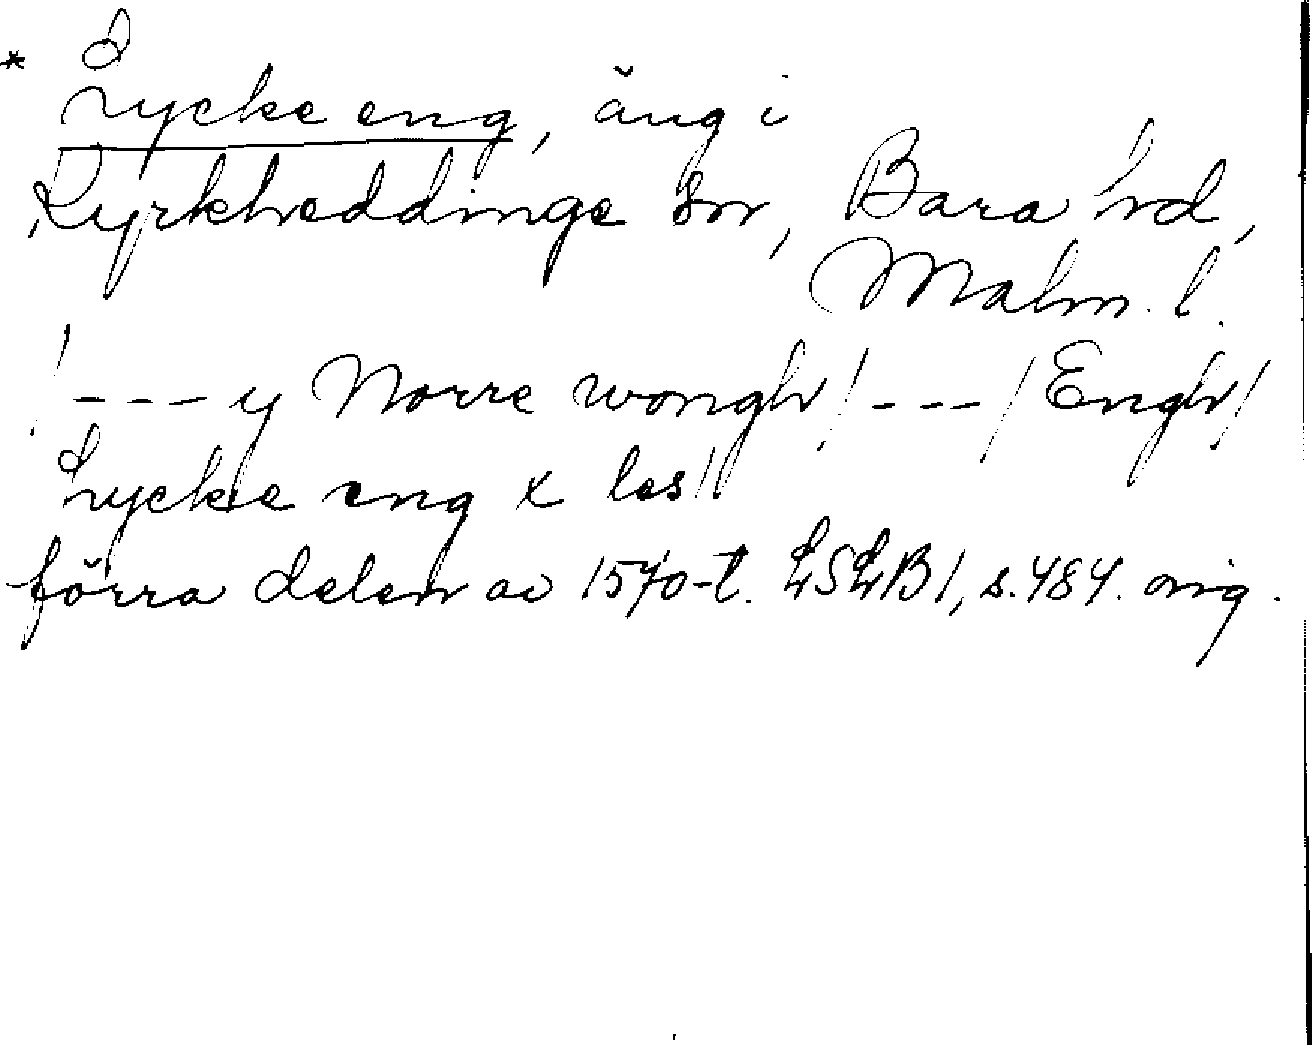 * Lycke eng, äng i
Kyrkheddinge sn, Bara hd,
Malm. l.
/---y Norre wongh/---/Engh/
Lycke eng x les//
förra delen av 1570-t. LSLB1, s. 484. orig.